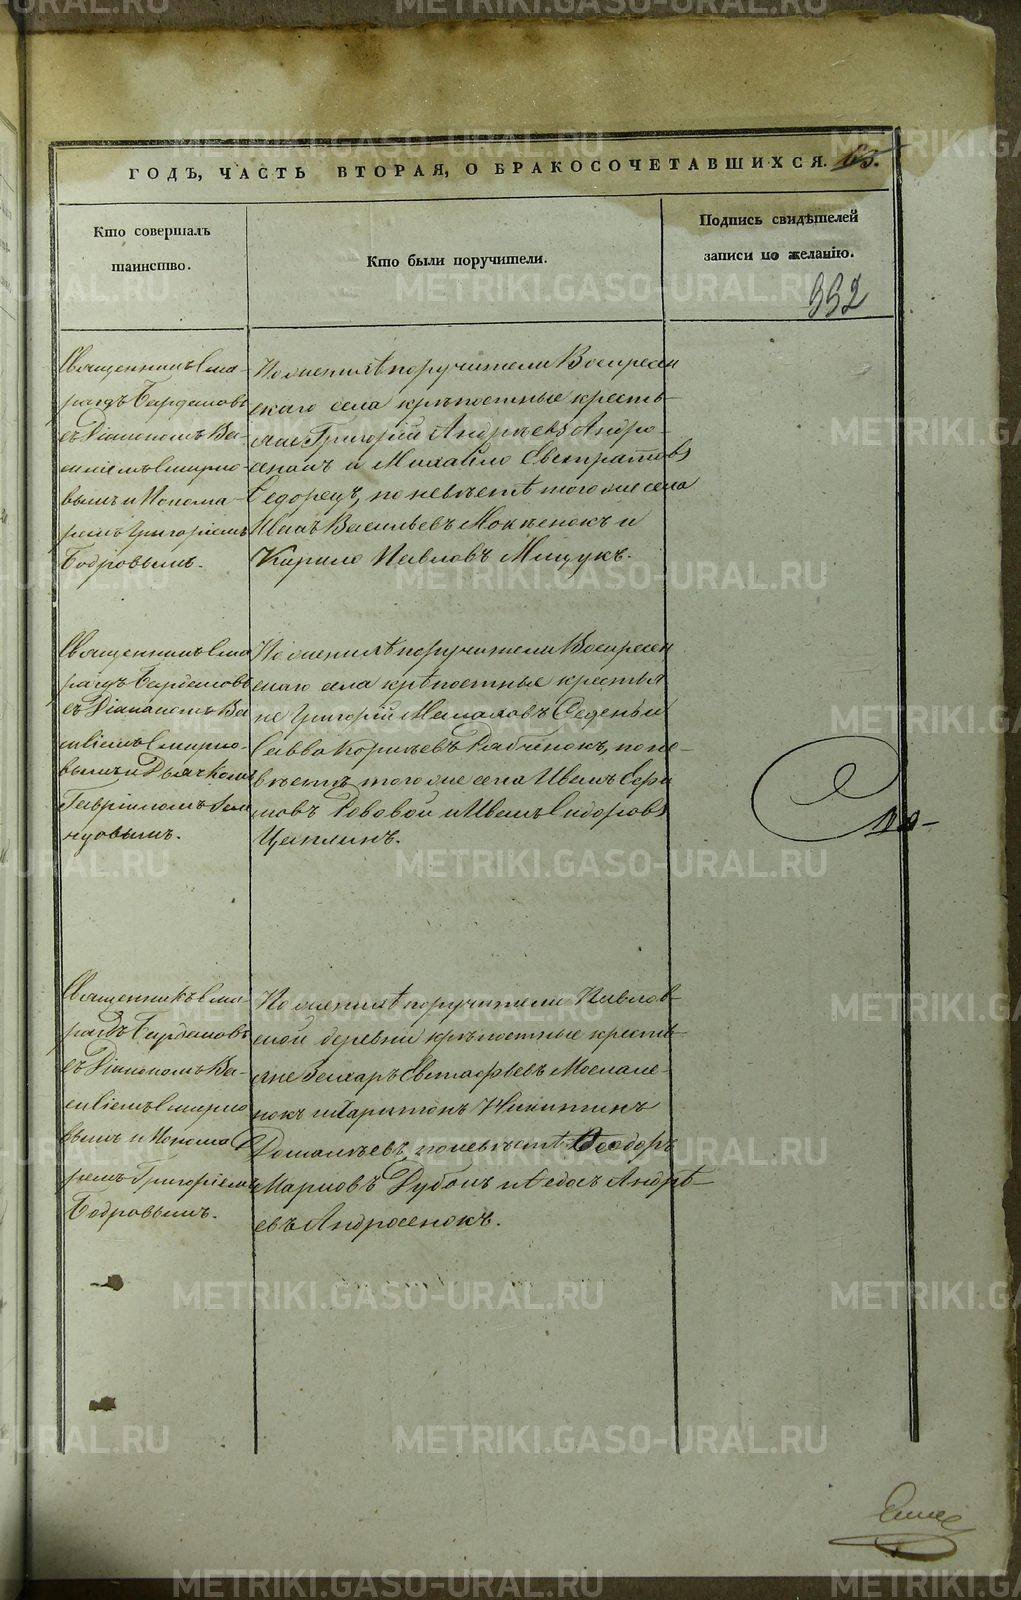 METRIKI.GASO-URAL.RU
ГОДЪ, ЧАСТЬ ВТОРАЯ, О БРАКОСОЧЕТАВШИХСЯ. 65.
Кто совершалъ
таинство.
Кто были поручители.
Подпись свидѣтелей
записи по желанію.
332
Священникъ Сма-
рагдъ Бурдаковъ
съ Діакономъ Ва-
силіемъ Смирно-
вымъ и Понома-
ремъ Григоріемъ
Бобровымъ.
По женихѣ поручители Воскресен
скаго села крѣпостные кресть-
яне Григорій Андреевъ Андро-
сенокъ и Михайло Евстратовъ
Сидорецъ, по невѣстѣ того же села
Иванъ Васильевъ и
Кирило Павловъ Мищукъ.
Священникъ Сма
рагдъ Бурдаковъ
съ Діакономъ Ва
силіемъ Смирно-
вымъ и Дьячкомъ
Гавріиломъ
По женихѣ поручители Воскресен
скаго села крѣпостные крестья
не Григорій и
Савва Рабченокъ, по не-
вѣстѣ того же села Иванъ
и Иванъ Сидоровъ
Цаплинъ.
Священникъ Сма-
рагдъ Бурдаковъ
съ Діакономъ Ва-
силіемъ Смирно
вымъ и Понома
ремъ Григоріемъ
Бобровымъ.
По женихѣ поручители Павлов-
ской деревни крѣпостные кресть-
яне Захаръ Евстафьевъ
и Харитонъ Никитинъ
по невѣстѣ Ѳеодоръ
Марковъ и Ѳедосъ Андрѣ-
евъ Андросенокъ.